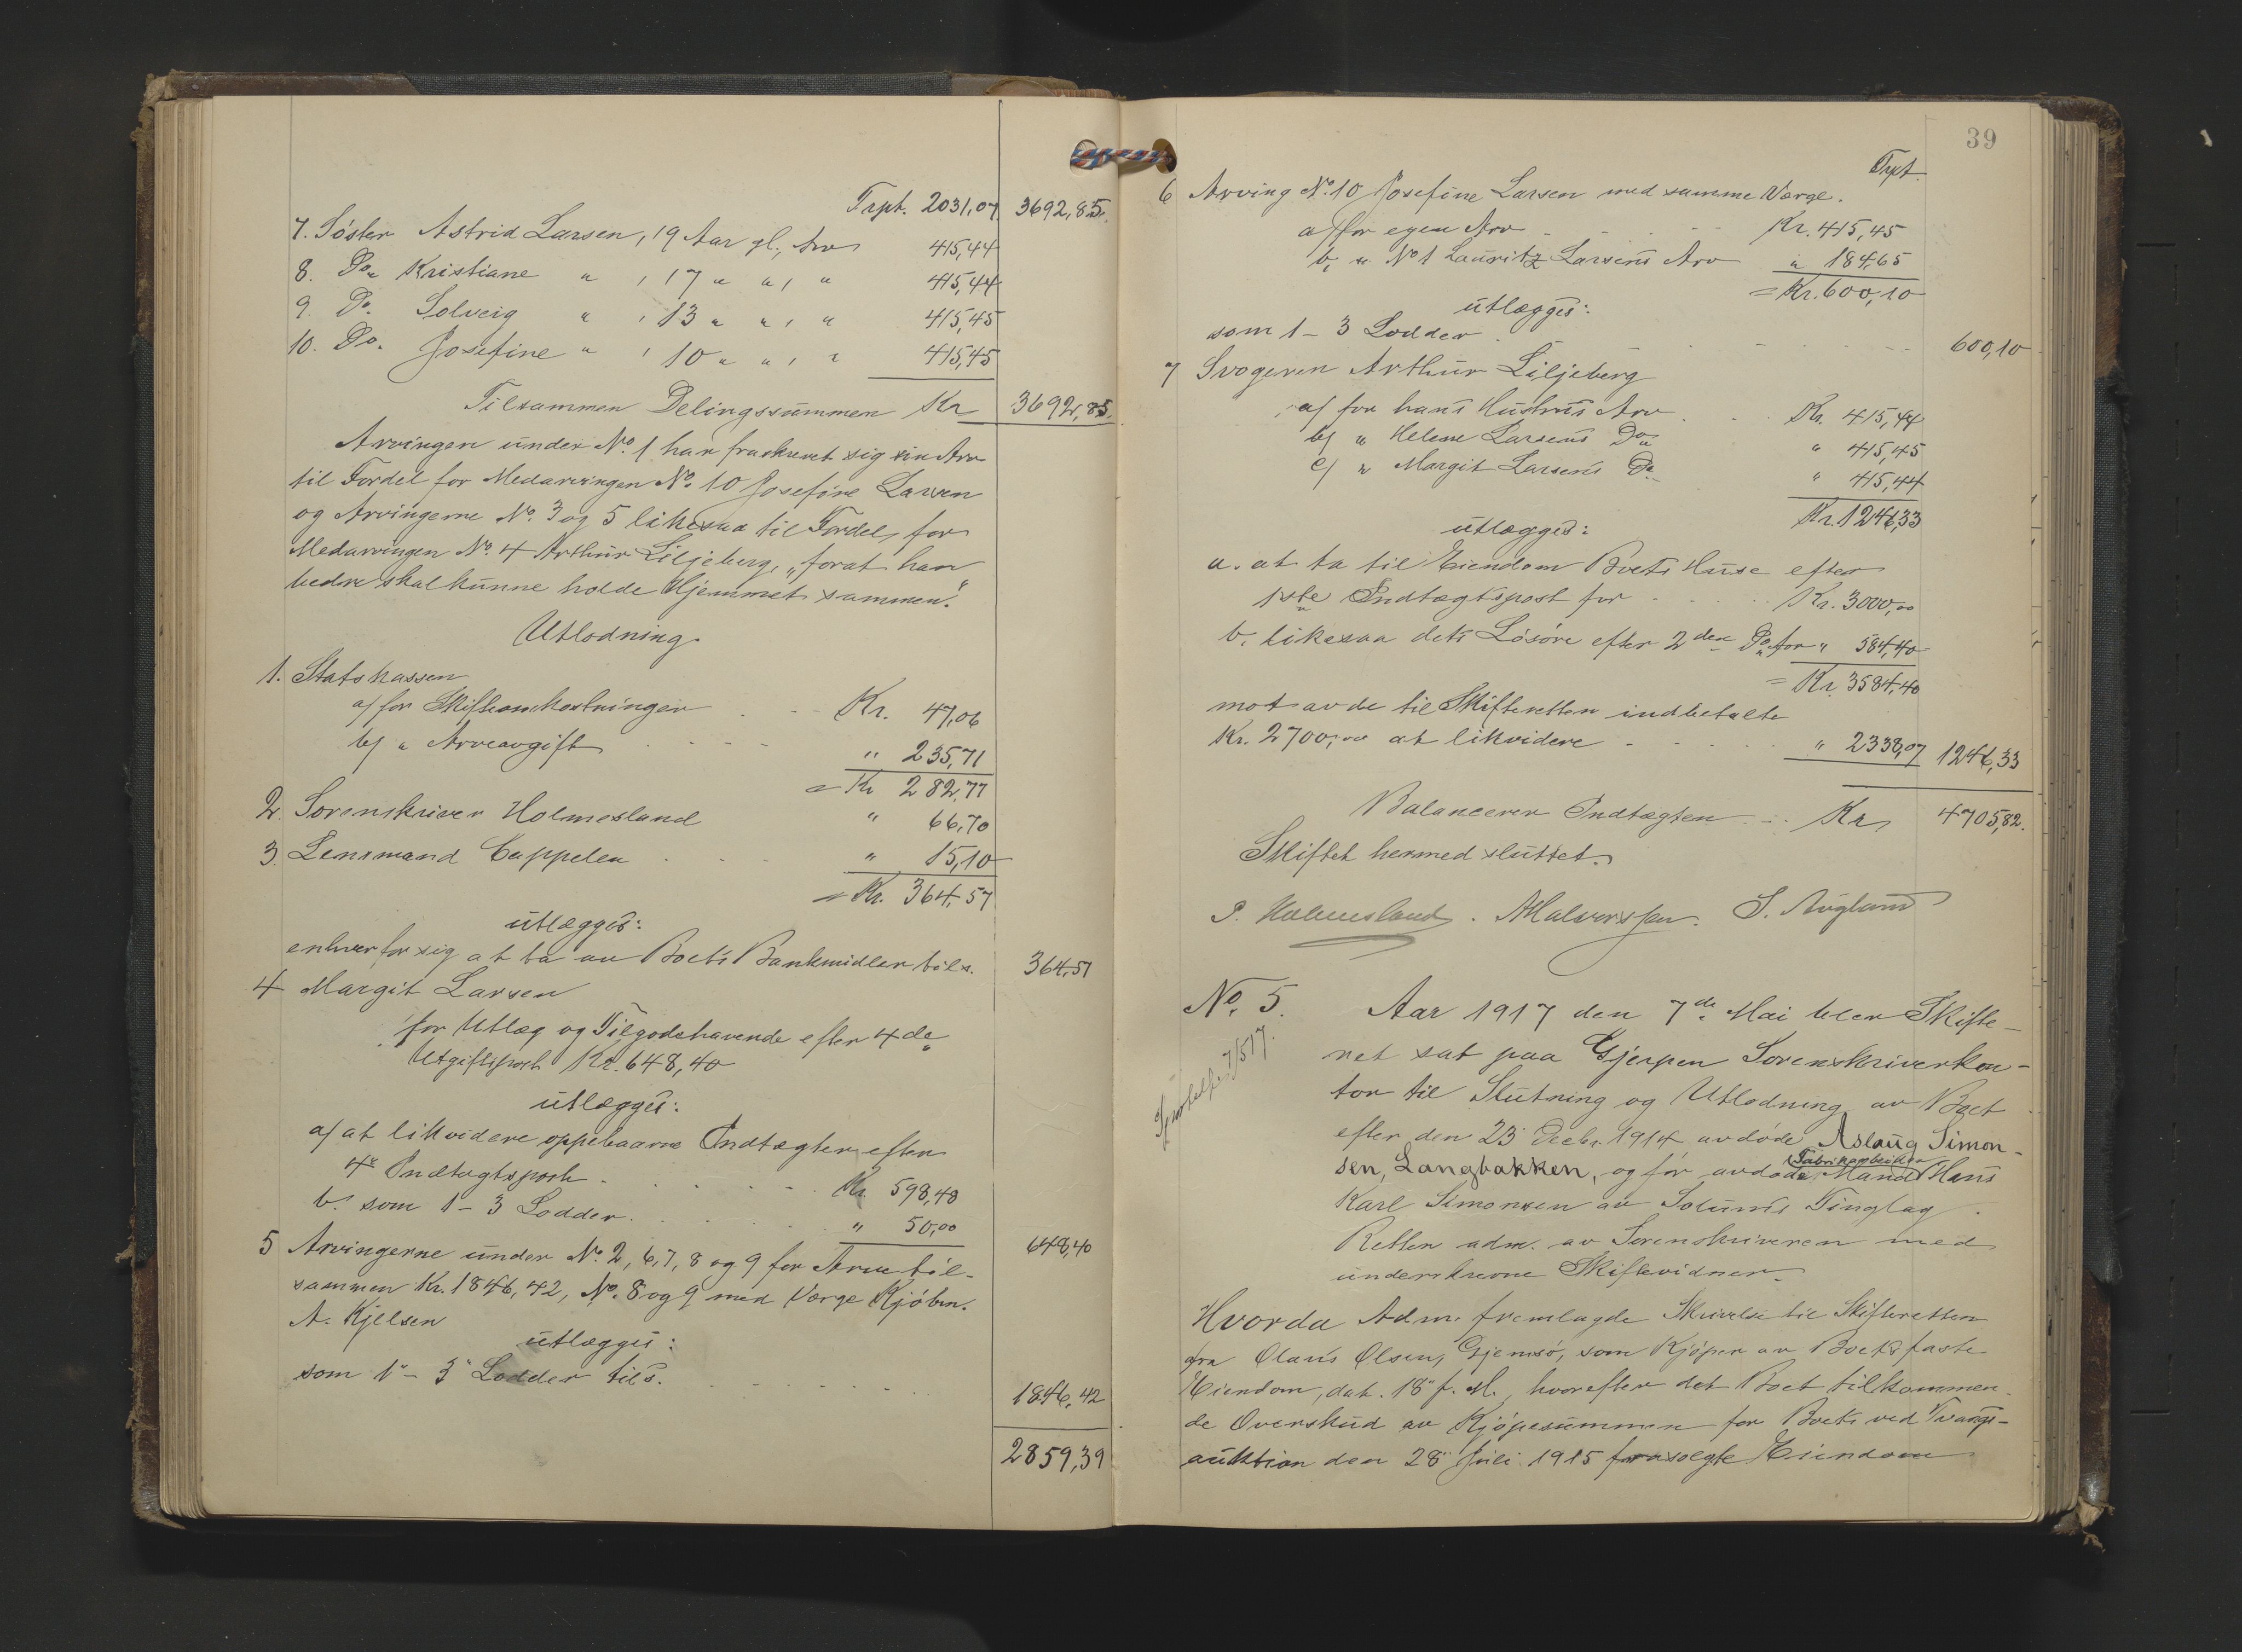 Trpt. 2031,07 3692,85.
7. Søster Astrid Larsen, 19 Aar gl., Arv 415,44
8. Do. Kristiane " , 17 " " , " 415,44
9. Do. Solveig " , 13 " " , " 415,45
10. Do. Josefine " , 10 " " , " 415,45
Tilsammen Delingssummen Kr 3692,85.
Arvingen under No. 1 har fraskrevet sig sin Arv
til Fordel for Medarvingen No. 10 Josefine Larsen
og Arvingerne No. 3 og 5 likesaa til Fordel for
Medarvingen No. 4 Arthur Liljeberg, "forat han
bedre skal kunne holde Hjemmet sammen."
Utlodning
1. Statskassen
a/ for Skifteomkostninger Kr. 47,06
b/ " Arveavgift " 235,71
= Kr 282,77
2. Sorenskriver Holmesland " 66,70
3. Lensmand Cappelen " 15,10
= Kr. 364,57
utlægges:
enhver for sig at ta av Boets Bankmidler tils. 364,57
4 Margit Larsen
for Utlæg og Tilgodehavende efter 4de
Utgiftspost Kr. 648,40
utlægges:
a/ at likvidere oppebaarne Indtægter efter
4. Indtægtspost Kr. 598,40
b. som 1-3 Lodder " 50,00
648,40
5 Arvingerne under No. 2, 6, 7, 8 og 9 for Arv til-
sammen Kr. 1846,42, No. 8 og 9 med Værge Kjøbm.
A. Kjelsen
utlægges:
som 1-3 Lodder tils. 1846,42
2859,39
39
Trpt.
6 Arving No. 10 Josefine Larsen med samme Værge.
a/ for egen Arv Kr. 415,45
b. " No 1 Lauritz Larsens Arv " 184,65
= Kr. 600,10
utlægges:
som 1-3 Lodder 600,10
7 Svogeren Arthur Liljeberg
a/ for hans Hustrus Arv Kr. 415,44
b/ " Helene Larsens Do. " 415,45
c/ " Margit Larsens Do. " 415,44
Kr. 1246,33
utlægges:
a. at ta til Eiendom Boets Huse efter
1ste Indtægtspost for Kr. 3000,00
b. likesaa dets Løsøre efter 2den Do. for " 584,40
= Kr. 3584,40
mot av de til Skifteretten indbetalte
Kr. 2700,00 at likvidere " 2338,07 1246,33
Balancerer Indtægten Kr 4705,82.
Skiftet hermed sluttet.
P. Holmesland. A Halvorssen. S. Auglund
No. 5. Aar 1917 den 7de Mai blev Skifte-
ret sat paa Gjerpen Sorenskriverkon-
tor til Slutning og Utlodning av Boet
efter den 23 Decbr. 1914 avdøde Aslaug Simon-
sen, Langbakken, og før avdøde Mand Fabrikarbeider Hans
Karl Simonsen av Solums Tinglag.
Retten adm. av Sorenskriveren med
underskrevne Skiftevidner.
Hvorda Adm. fremlagde Skrivelse til Skifteretten
fra Olaus Olsen, Gjemsø, som Kjøper av Boets faste
Eiendom, dat. 18 f. M., hvorefter det Boet tilkommen-
de Overskud av Kjøpesummen for Boets ved Tvangs-
auktion den 28 Juli 1915 forsolgte Eiendom